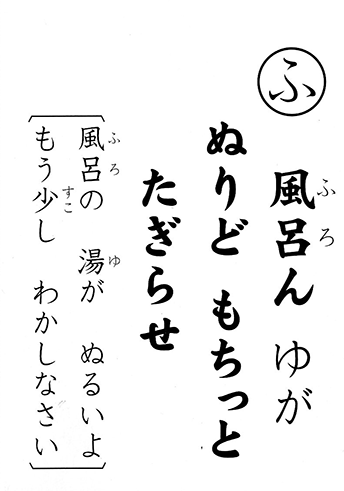 ふ
風呂ん ゆが
ぬりど もちっと
たぎらせ
風呂の 湯が ぬるいよ
もう少し わかしなさい